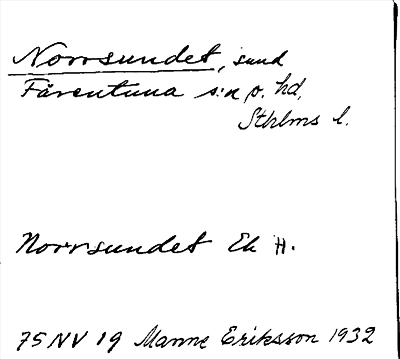 Norrsundet, sund
Färentuna s:n o. hd,
Sthlms l.
Norrsundet Ek H.
75 NV 19 Manne Eriksson 1932